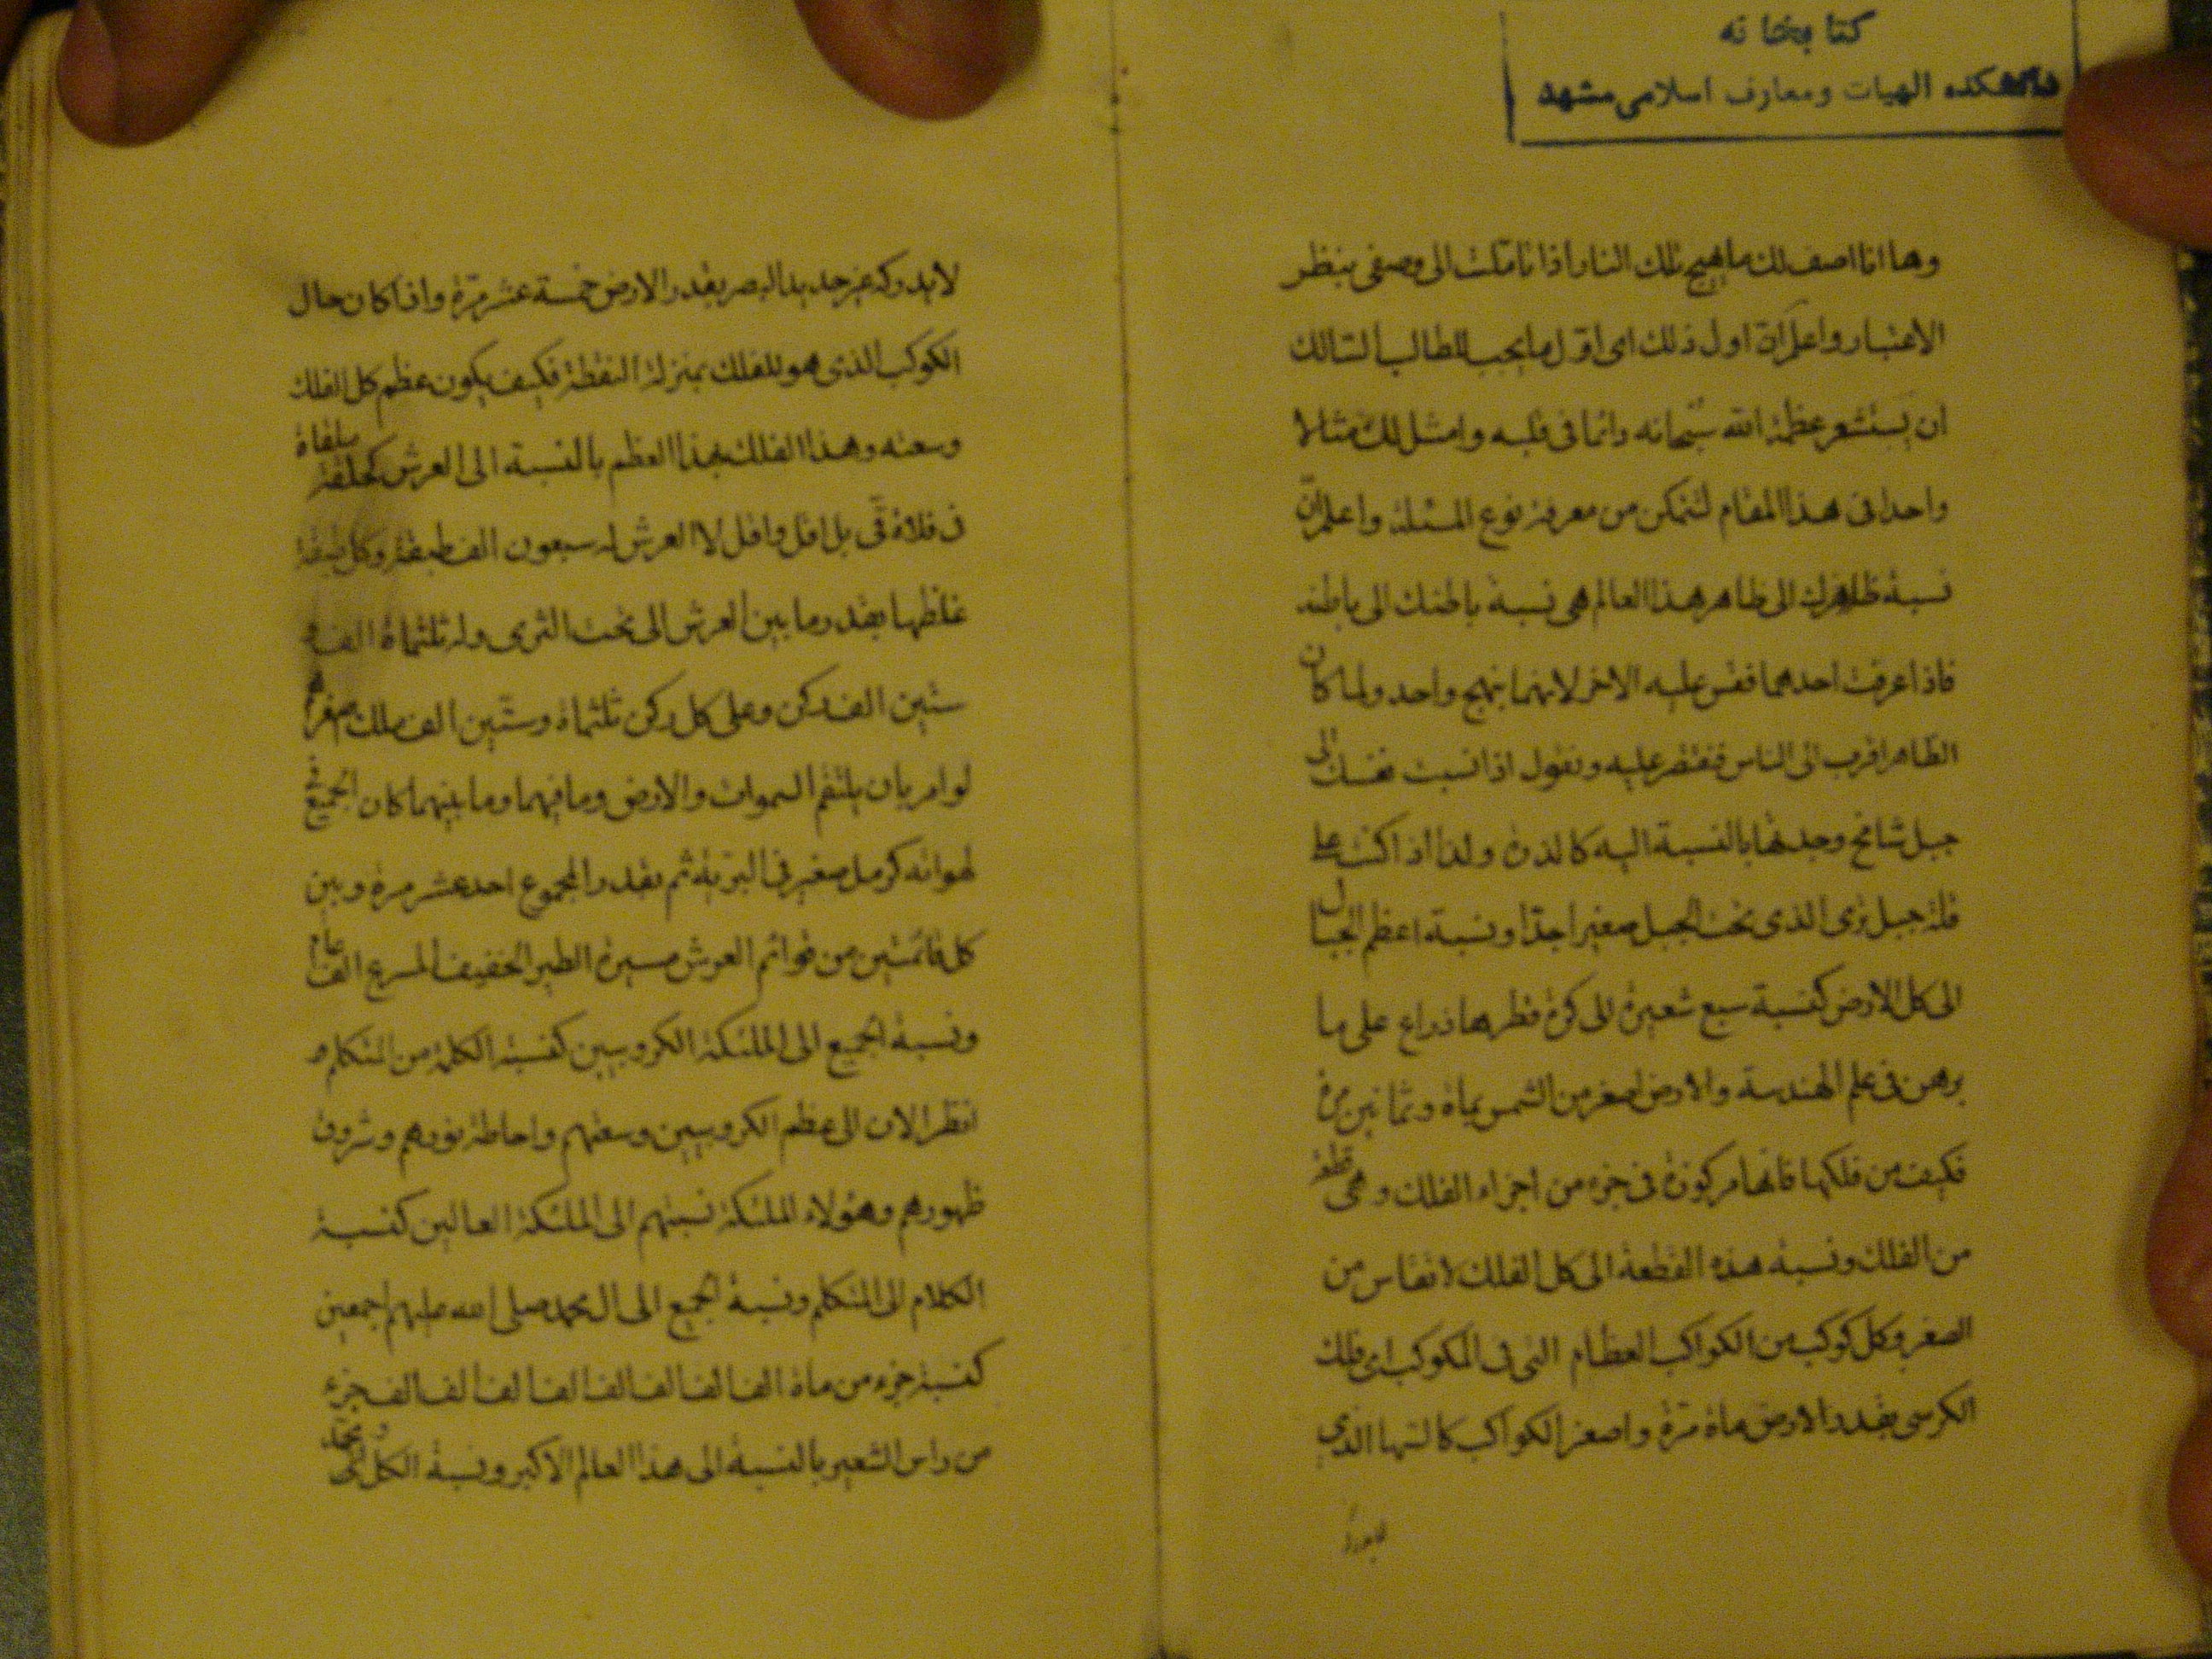 كتابخانه
دانشكده الهيات ومعارف اسلامى مشهد
وها انا اصف لك ما يهيج تلك النار اذا تاملت الى وصفى بنظر
الاعتبار واعلم ان اول ذلك اى اول ما يجب للطالب السالك
ان يستشعر عظمة الله سبحانه دائما فى قلبه وامثل لك مثالا
واحدا فى هذا المقام لتتمكن من معرفة نوع المسئلة واعلم ان
نسبة ظاهرك الى ظاهر هذا العالم هى نسبة باطنك الى باطنه
فاذا عرفت احدهما فقس عليه الاخر لانهما بنهج واحد ولما كان
الظاهر اقرب الى الناس فنقتصر عليه ونقول اذا نسبت نفسك الى
جبل شامخ وجدتها بالنسبة اليه كالذرة ولذا اذا كنت على
قلة جبل ترى الذى تحت الجبل صغيرا جدا ونسبة اعظم الجبال
الى كل الارض كنسبة سبع شعيرة الى كرة قطرها ذراع على ما
برهن فى علم الهندسة والارض اصغر من الشمس بماة وثمانين مرة
فكيف من فلكها فانها مركوزة فى جزء من اجزاء الفلك وهى قطعة
من الفلك ونسبة هذه القطعة الى كل الفلك لا تقاس من
الصغر وكل كوكب من الكواكب العظام التى فى المكوكب اى فلك
الكرسى بقدر الارض ماة مرة واصغر الكواكب كالسها الذى
لايدركه
لايدركه غير حديد البصر بقدر الارض خمسة عشر مرة واذا كان حال
الكوكب الذى هو للفلك بمنزلة النقطة فكيف يكون عظم كل الفلك
وسعته وهذا الفلك بهذا العظم بالنسبة الى العرش كحلقة ملقاة
فى فلاة قى بل اقل واقل لا العرش له سبعون الف طبقة وكل طبقة
غلظها بقدر ما بين العرش الى تحت الثرى وله ثلثماة الف و
ستين الف ركن وعلى كل ركن ثلثماة وستين الف ملك اصغرهم
لو امر بان يلتقم السموات والارض وما فيهما وما بينهما كان الجميع فى
لهواته كرمل صغير فى البرية ثم بقدر المجموع احد عشر مرة وبين
كل قائمتين من قوائم العرش مسيرة الطير الخفيف المسرع الف عام
ونسبة الجميع الى الملئكة الكروبيين كنسبة الكلمة من المتكلم
انظر الان الى عظم الكروبيين وسعتهم واحاطة نورهم وشروق
ظهورهم وهؤلاء الملئكة نسبتهم الى الملئكة العالين كنسبة
الكلام الى المتكلم ونسبة الجميع الى ال محمد صلى الله عليهم اجمعين
كنسبة جزء من ماة الف الف الف الف الف الف الف الف جزء
من راس الشعير بالنسبة الى هذا العالم الاكبر ونسبة الكل الى محمد